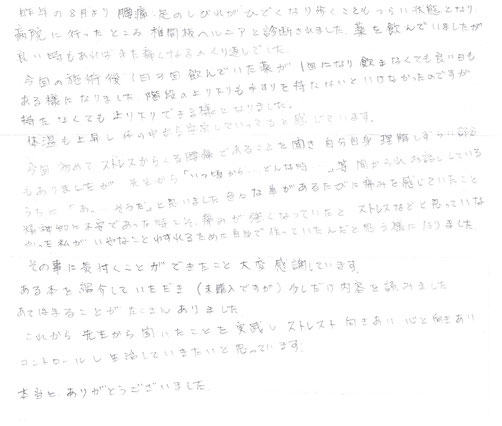 昨年の8月より 腰痛、足のしびれがひどくなり歩くこともつらい状態となり
病院に行ったところ 椎間板ヘルニアと診断されました。薬を飲んでいましたが
良い時もあればまた痛くなるのくり返しでした。
今回の施術後 1日3回飲んでいた薬が 1回になり 飲まなくても良い日も
ある様になりました 階段の上り下りも手すりを持たないといけなかったのですが
持たなくても上り下りできる様となりました。
体温も上昇し 体の中から安定していってると感じています。
今回 初めて ストレスからくる腰痛であることを聞き 自分自身 理解しずらい部分
もありましたが 先生から「いつ頃から…どんな時…」等 聞かられ お話ししている
うちに「あ、そうだ」と思いました 色々な事があるたびに痛みを感じていたこと
精神的に不安であった時こそ、痛みが強くなっていたと ストレスなどと思っていな
かった私が いやなことわすれるために自分で作っていたんだと思う様になりました
その事に気付くことができたこと 大変 感謝しています。
ある本を紹介していただき (未購入ですが) 少しだけ内容を読みました
あてはまることが たくさん ありました
これから 先生から聞いたことを 実践し ストレスと 向きあい 心と向きあい
コントロールし 生活していきたいと 思っています。
本当に ありがとうございました。